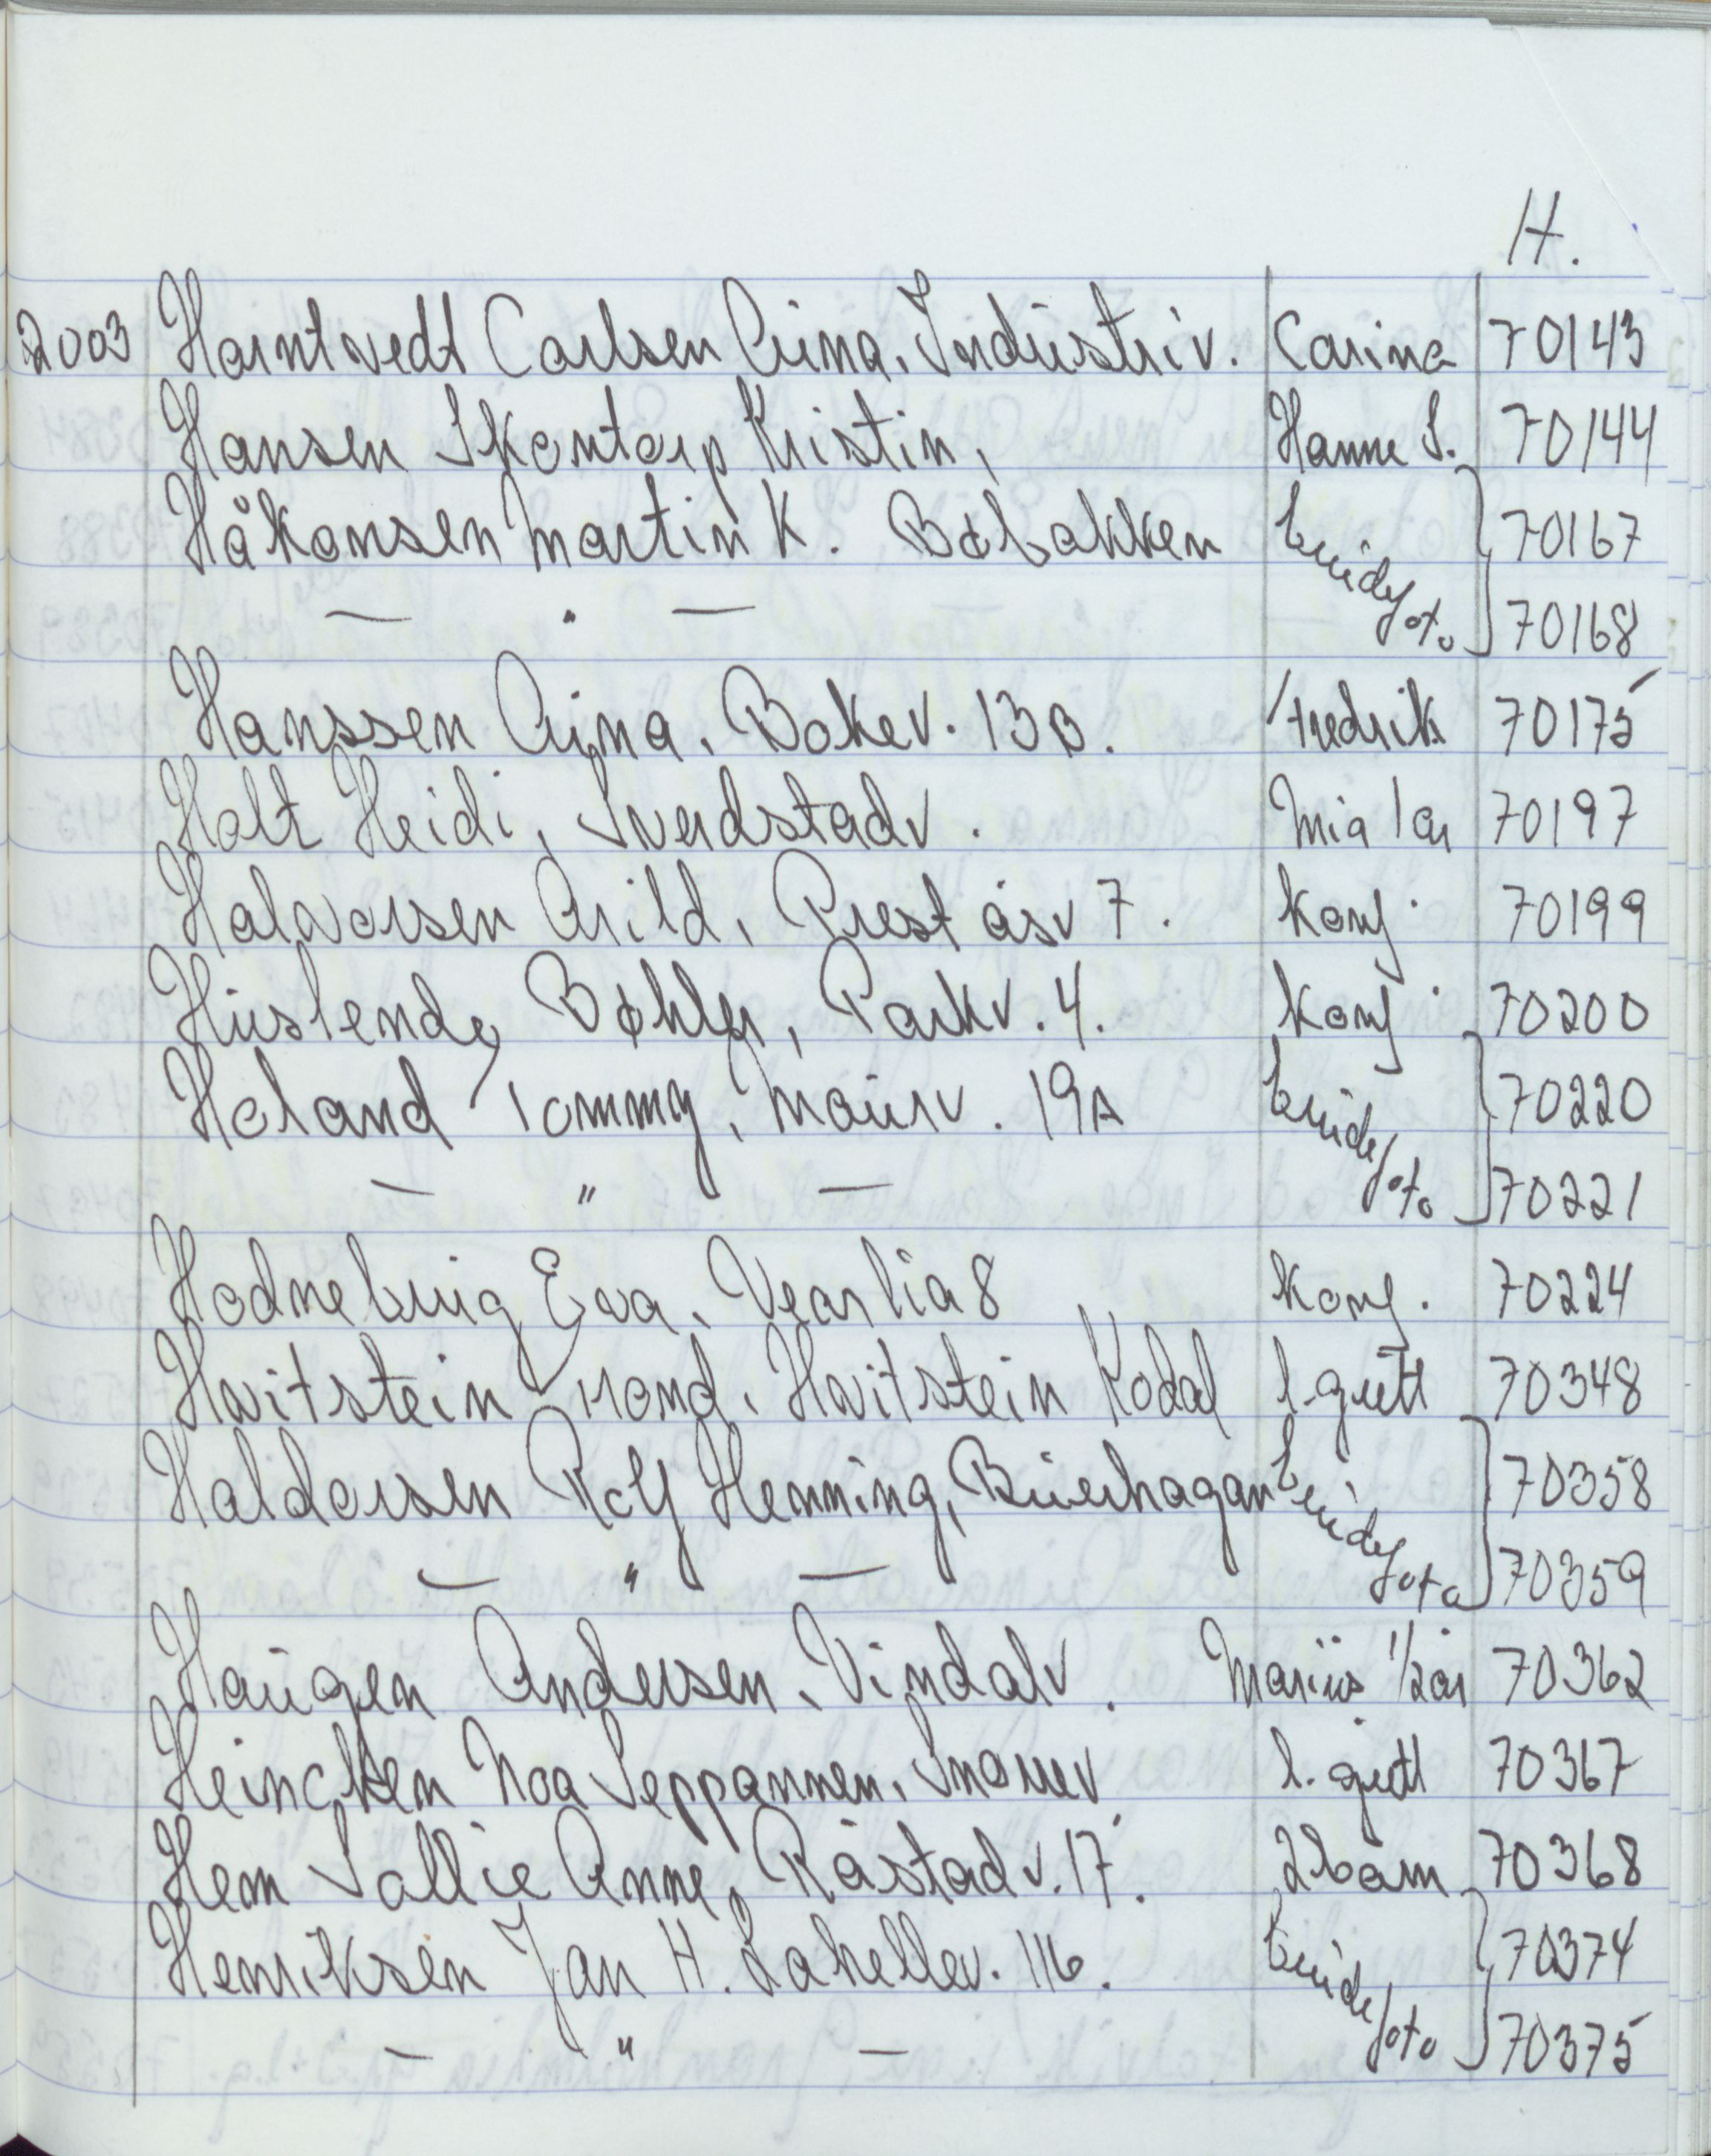 H.
2003 Harntvedt Carlsen Unna, Industriv. Carina 70143
Hansen Skontorp Kristin, Hanne S. 70144
Håkonsen Martin K. Bøbakken brudefoto 70167
— " — 70168
Hanssen Unna, Bokev. 13B. Fredrik 70175
Holt Heidi, Sverdstadv. Mia 1 år 70197
Halvorsen Arild, Preståsv 7. konf. 70199
Huslende Bøhler, Parkv. 4. konf. 70200
Holand Tommy, Maurv. 19A brudefoto 70220
— " — 70221
Hodneburg Eva, Vearlia 8 konf. 70224
Hvitstein Trond, Hvitstein Kodal l.gutt 70348
Haldorsen Rolf Henning, Buerhagan brudefoto 70358
— " — 70359
Haugen Andersen, Vindalv. Marius 1/2 år 70362
Heincken Noa Seppannen, Snarev. l. gutt 70367
Hem Sallie Anne, Råstadv. 17. 2 barn 70368
Henriksen Jan H. Lahellev. 116. brudefoto 70374
— " — 70375